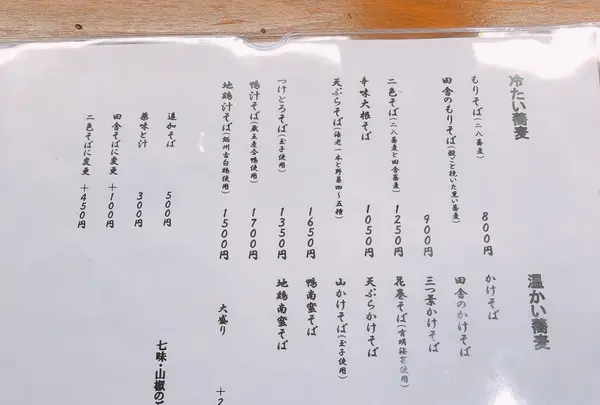 冷たい蕎麦
もりそば(二八蕎麦) 800円
田舎のもりそば(殻ごと挽いた黒い蕎麦) 900円
二色そば(二八蕎麦と田舎蕎麦) 1250円
辛味大根そば 1050円
天ぷらそば(海老一本と野菜四～五種) 1650円
つけとろそば(玉子使用) 1350円
鴨汁そば(蔵王産合鴨使用) 1700円
地鶏汁そば 1500円
追加そば 500円
薬味と汁 300円
田舎そばに変更 +100円
二色そばに変更 +450円
温かい蕎麦
かけそば
田舎のかけそば
三つ葉かけそば
花巻そば(有明海苔使用)
天ぷらかけそば
山かけそば(玉子使用)
鴨南蛮そば
地鶏南蛮そば
大盛り +2
七味・山椒の